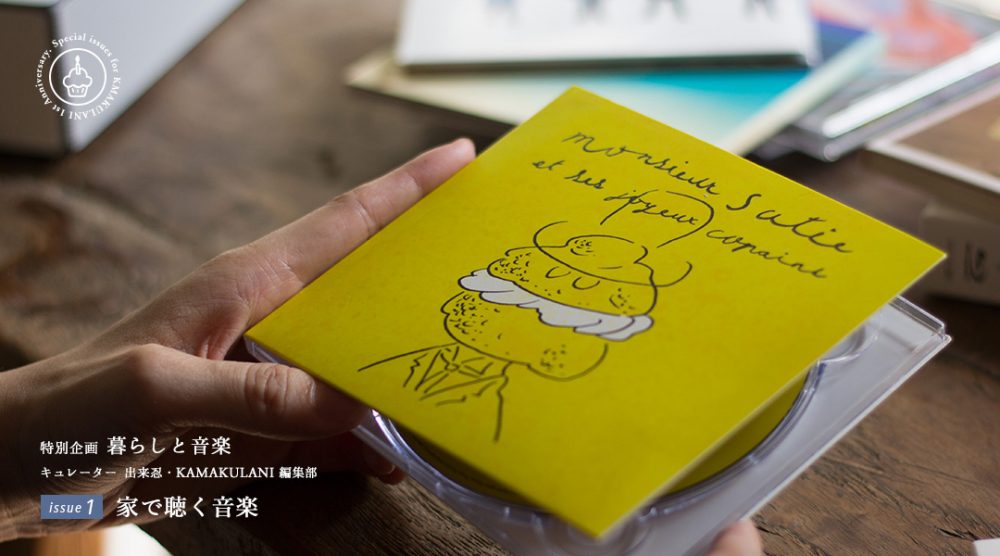 1st Anniversary. Special issues for KAMAKULANI
monsieur Satie
et ses joyeux copains
特別企画 暮らしと音楽
キュレーター 出来忍・KAMAKULANI 編集部
issue 1 家で聴く音楽